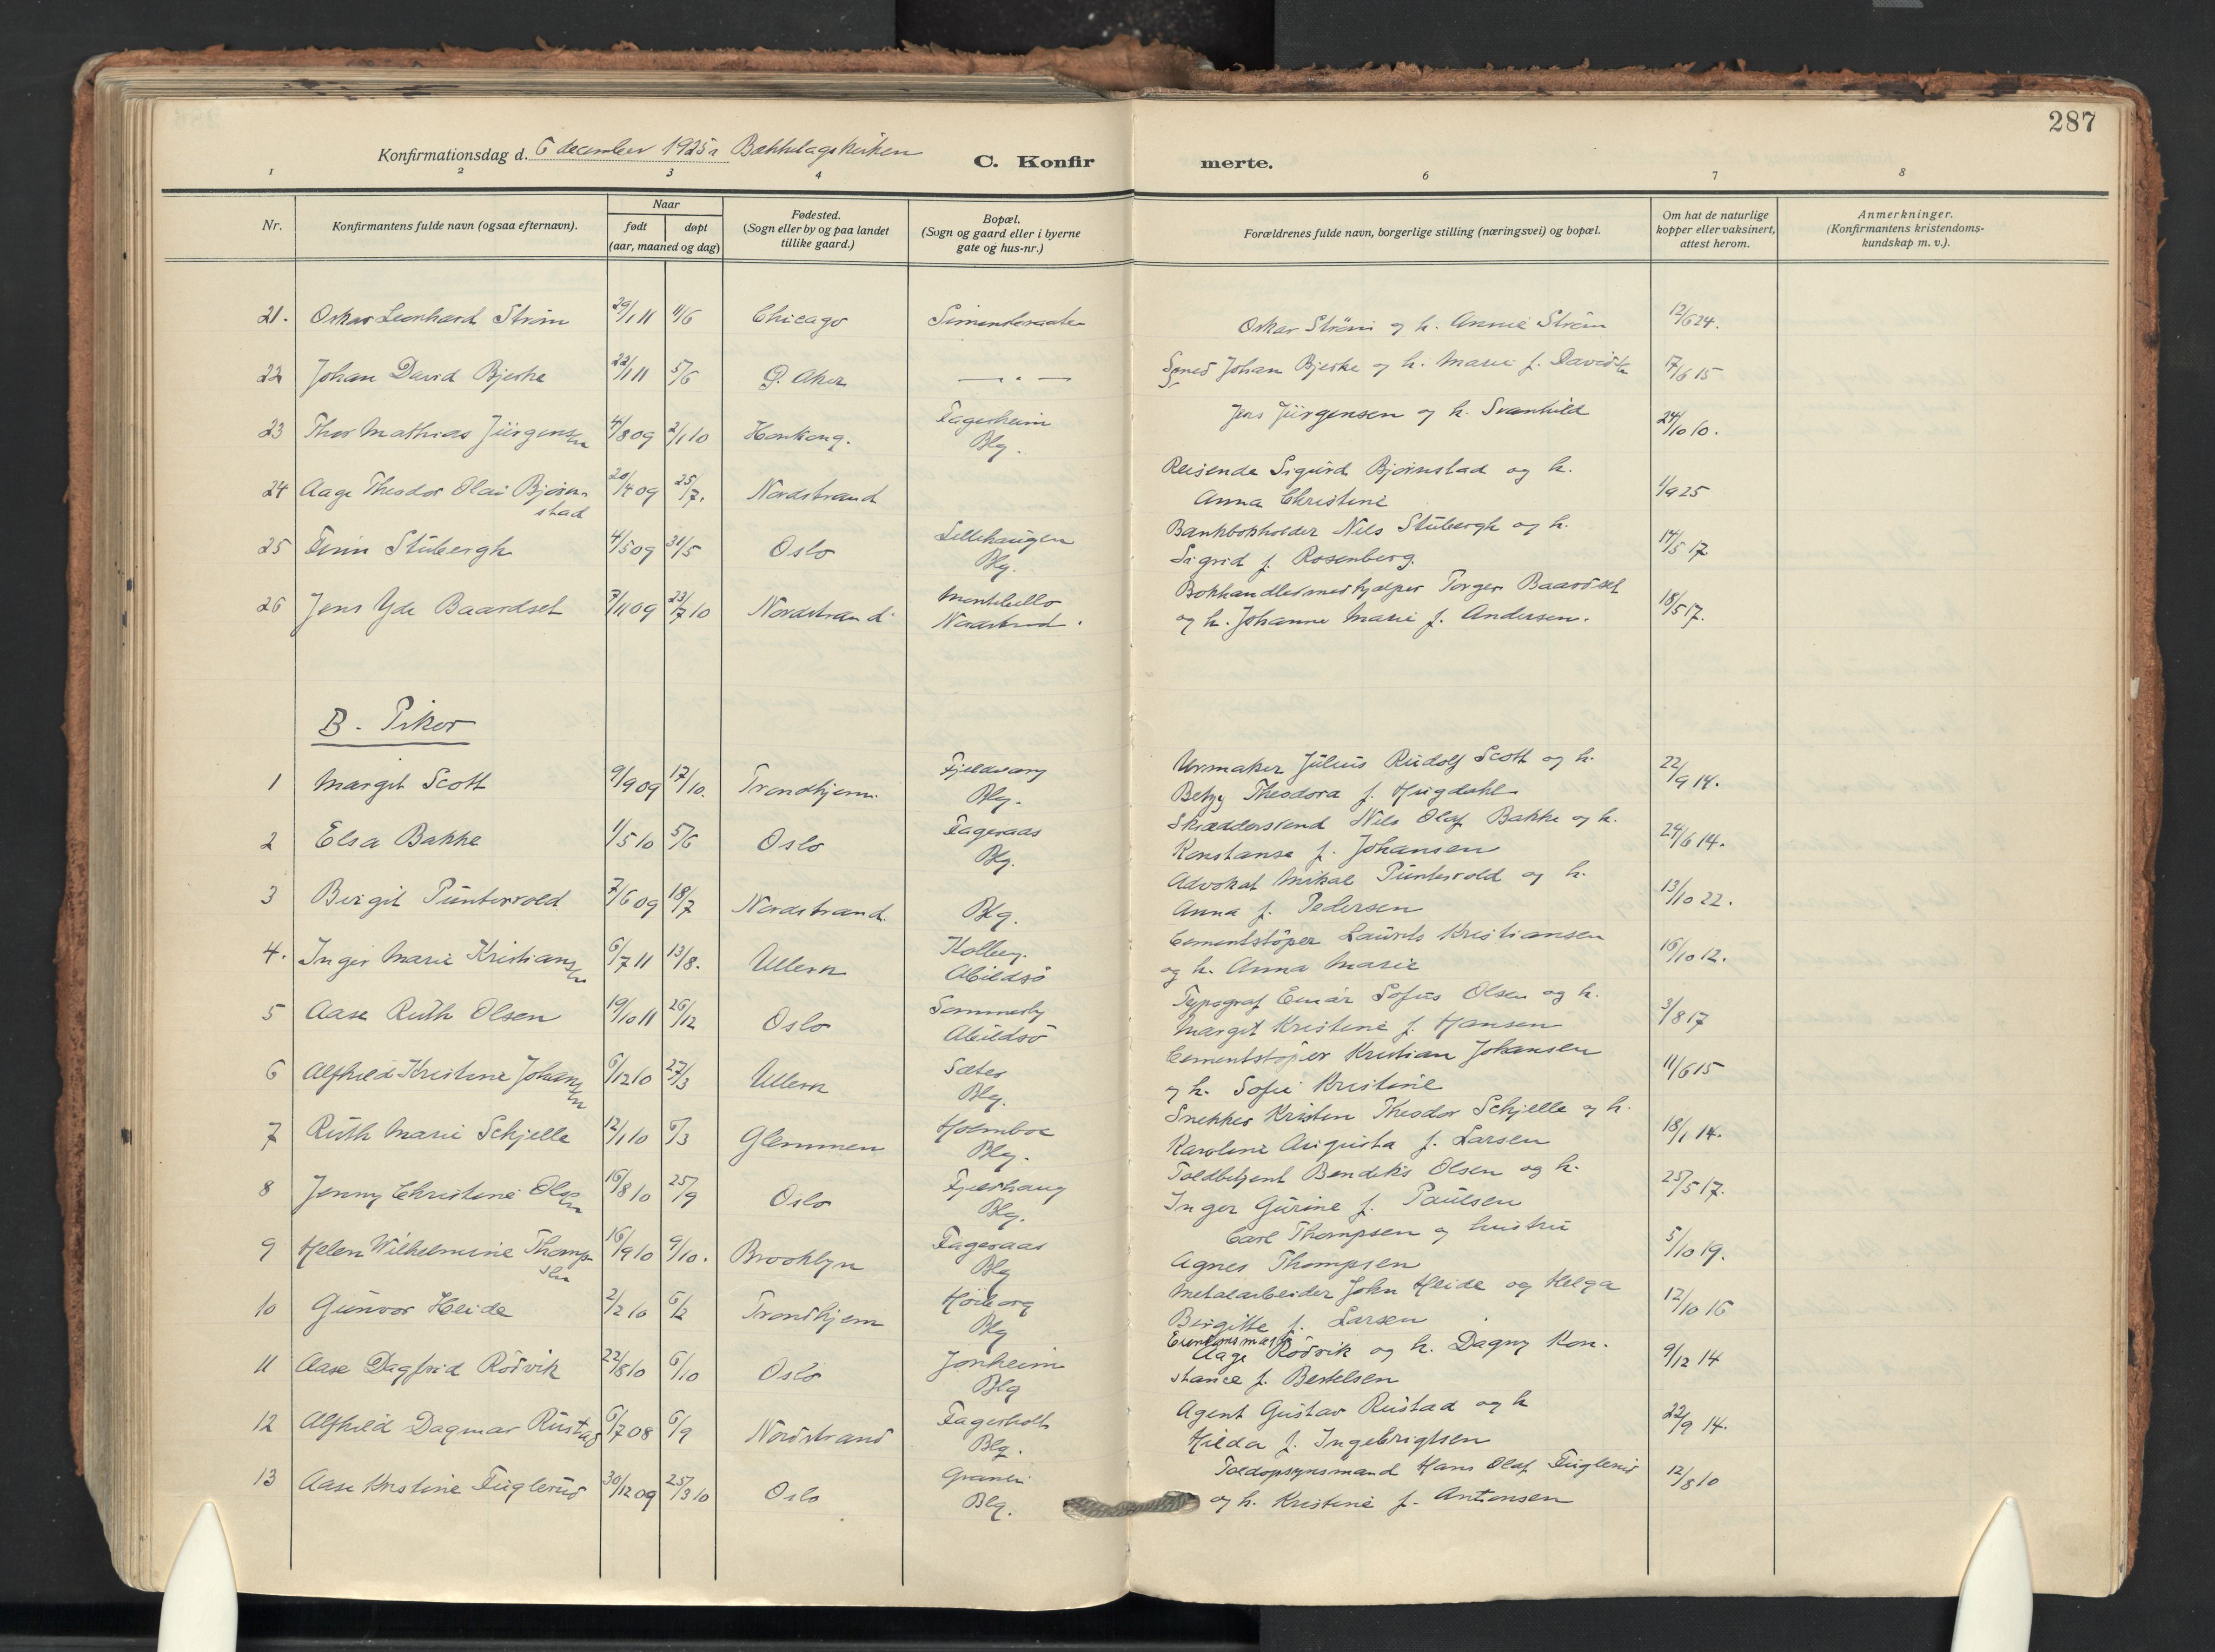 287
Konfirmationsdag d. 6 december 1925 i Bækkelagskirken
C. Konfir merte.
1 2 3 4 6 7 8
Nr. Konfirmantens fulde navn (ogsaa efternavn). Naar født døpt (aar, maaned og dag) Fødested. (Sogn eller by og paa landet tillike gaard.) Bopæl. (Sogn og gaard eller i byerne gate og hus-nr.) Forældrenes fulde navn, borgerlige stilling (næringsvei) og bopæl. Om hat de naturlige kopper eller vaksinert, attest herom. Anmerkninger. (Konfirmantens kristendoms-kundskap m. v.).
21. Oskar Leonhard Strøm 29/1 11 11/6 Chicago Oskar Strøm og h. Annie Strøm 12/6 24.
22 Johan David Bjerke 22/1 11 5/6 Ø. Aker — " — Smed Johan Bjerke og h. Marie f. Davidsen 17/6 15
23 Thor Mathias Jürgensen 4/8 09 2/1 10 Honkong. Fagerheim Blg. Jens Jürgensen og h. Svanhild 24/10 10.
24 Aage Theodor Olai Bjørnstad 20/4 09 25/7. Nordstrand Reisende Sigurd Bjørnstad og h.
Anna Christine 1/9 25
25 Finn Stubergh 4/5 09 31/5 Oslo Lillehaugen Blg. Bankbokholder Nils Stubergh og h.
Sigrid f. Rosenberg. 14/5 17.
26 Jens Yde Baardset 7/11 09 23/7 10 Nordstrand Montebello Nordstrand. Bokhandlermedhjælper Torger Baardset
og h. Johanne Marie f. Andersen. 18/5 17.
B. Piker
1 Margit Scott 9/9 09 17/10. Trondhjem. Fjeldvang Blg. Urmaker Julius Rudolf Scott og h.
Betzy Theodora f. Hugdahl 22/9 14.
2 Elsa Bakke 1/5 10 5/6 Oslo Fageraas Blg. Skræddersvend Nils Olaf Bakke og h.
Konstanse f. Johansen 24/6 14.
3 Birgit Puntervold 7/6 09 18/7 Nordstrand. Blg. Advokat Mikal Puntervold og h.
Anna f. Pedersen 13/10 22.
4. Inger Marie Kristiansen 6/7 11 13/8. Ullern Kolberg. Abildsø Cementstøper Laurits Kristiansen
og h. Anna Marie 16/10 12.
5 Aase Ruth Olsen 19/10 11 26/12 Oslo Sommerly Abildsø Typograf Einar Sofus Olsen og h.
Margit Kristine f. Hansen 3/8 17
6 Alfhild Kristine Johansen 6/12 10 27/3 Ullern Sæter Blg. Cementstøper Kristian Johansen
og h. Sofie Kristine 11/6 15
7 Ruth Marie Schjelle 12/1 10 6/3 Glemmen Holmboe Blg. Snekker Kristen Theodor Schjelle og h.
Karoline Augusta f. Larsen 18/1 14.
8 Jenny Christine Olsen 16/8 10 25/9 Oslo Fjeldhaug Blg. Toldbetjent Bendiks Olsen og h.
Inger Gurine f. Paulsen 25/5 17.
9 Helen Wilhelmine Thompsen 16/9 10 9/10. Brooklyn Fageraas Blg Carl Thompsen og hustru
Agnes Thompsen 5/10 19.
10 Gunvor Heide 2/2 10 6/2 Trondhjem Høiborg Blg Metalarbeider John Heide og Helga
Birgitte f. Larsen 12/10 16
11 Aase Dagfrid Rödvik 22/8 10 6/10 Oslo Jonheim Blg Eiendomsmægl. Aage Rödvik og h. Dagny Konstance f. Bertelsen 9/12 14
12 Alfhild Dagmar Rustad 6/7 08 6/9 Nordstrand Fagerholt Blg. Agent Gustav Rustad og h
Hilda f. Ingebrigtsen 22/9 14.
13 Aase Kristine Fuglerud 30/12 09 25/3 10 Oslo Granli Blg. Toldopsynsmand Hans Olaf Fuglerud
og h. Kristine f. Antonsen 12/8 10